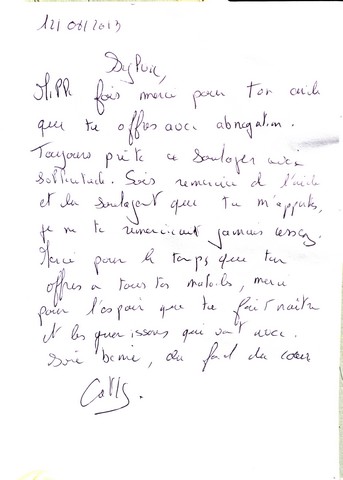 12/06/2013
Sylvie,
Mille fois merci pour ton aide
que tu offres avec abnégation.
Toujours prête à soulager avec
sollicitude. Sois remerciée de l'aide
et du soulagement que tu m'apportes,
je ne te remercierai jamais assez.
Merci pour le temps que tu
offres à tous tes malades, merci
pour l'espoir que tu fait naître
et les guérisons qui vont avec.
Sois bénie, du fond du cœur